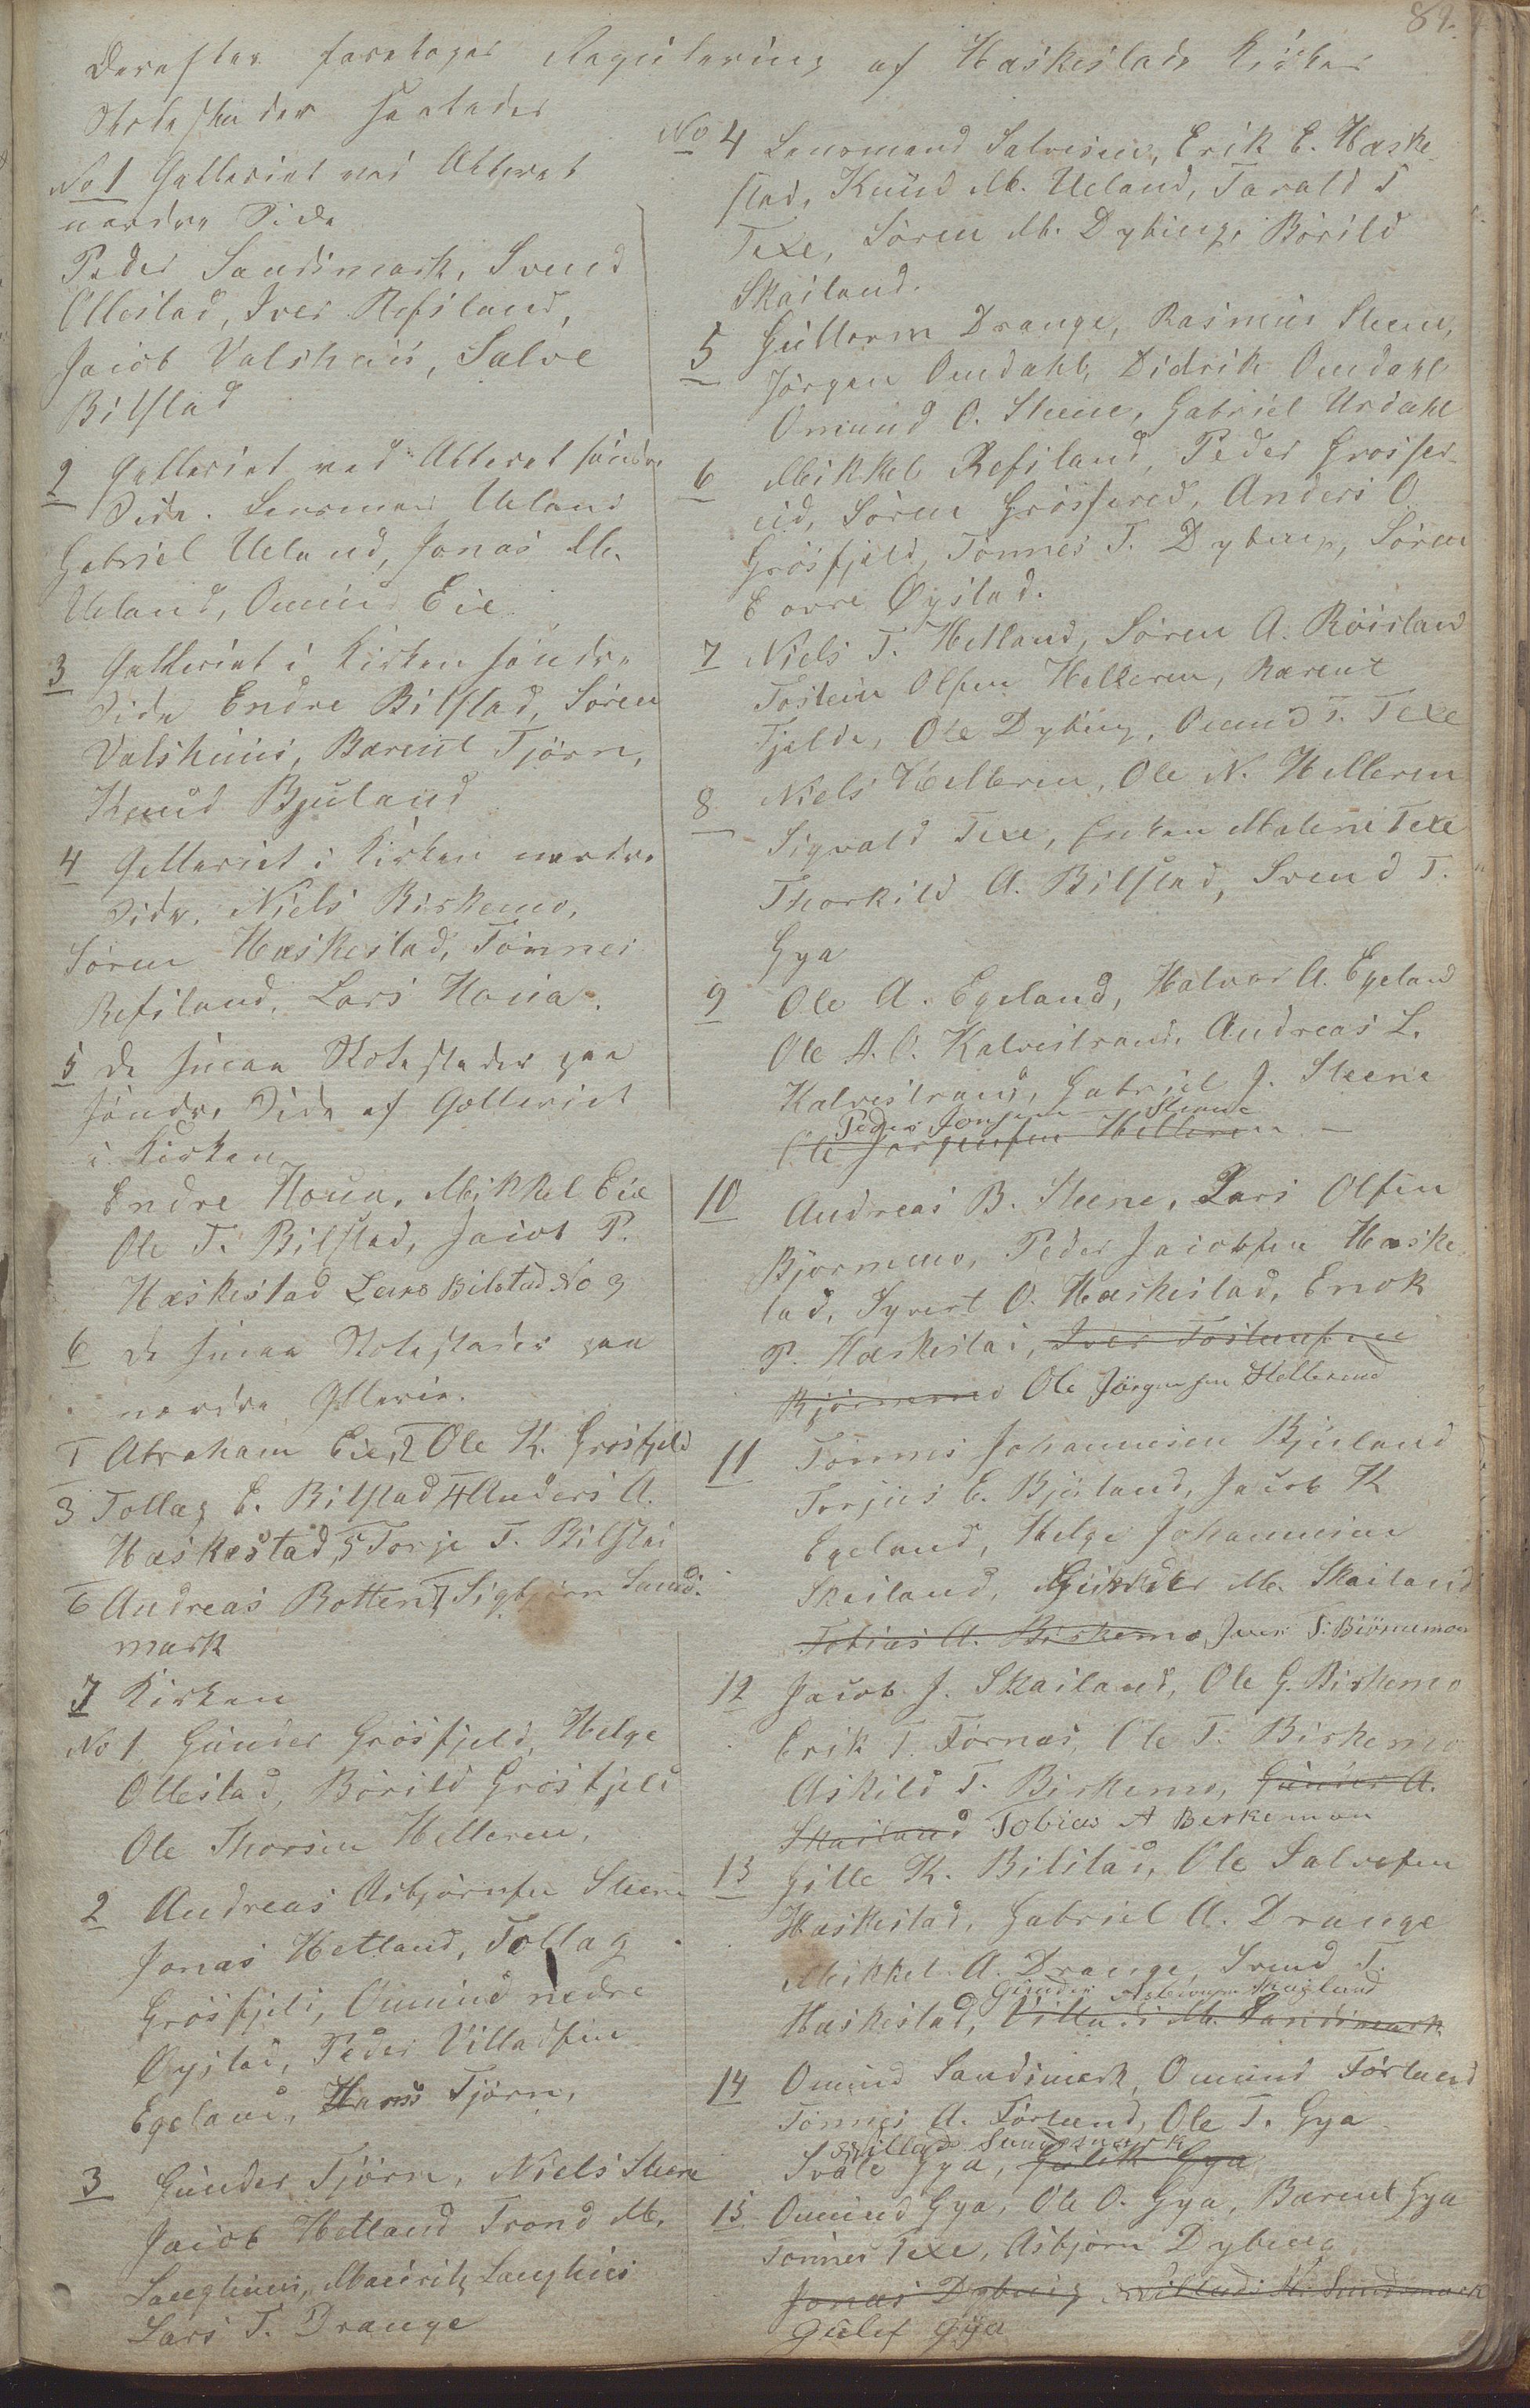 84.
Derefter foretoges Regulering af Hæskestads Kirkes
Stolestader saaledes
No 1 Galleriet ved Alteret
nordre Side
Peder Sandsmark, Svend
Ollestad, Iver Refsland,
Jacob Valshuus, Salve
Bilstad
2 Galleriet ved Alteret søndre
Side. Lensmand Ueland
Gabriel Ueland, Jonas M.
Ueland, Omund Eie
3 Galleriet i Kirken søndre
Side Endre Bilstad, Sören
Valshuus, Barent Tjörn,
Knud Bjuland
4 Galleriet i Kirken nordre
Side. Niels Birkemo,
Sören Hæskestad, Tönnes
Refsland, Lars Houa.
5 de smaa Stolestader paa
søndre Side af Galleriet
i Kirken
Endre Houa, Mikkel Eie
Ole T. Bilstad, Jacob P.
Hæskestad Lars Bilstad No 3
6 de smaa Stolestader paa
nordre Gallerie.
1 Abraham Eie, 2 Ole K. Grösfjeld
3 Tollag E. Bilstad 4 Anders A.
Hæskestad, 5 Torje T. Bilstad
6 Andreas Botten 7 Sigbjörn Sands-
mark
7 Kirken
No 1 Gunder Grösfjeld, Helge
Ollestad, Börild Grösfjeld
Ole Thorsen Helleren,
2 Andreas Asbjörnsen Steene
Jonas Hetland, Tollag
Grösfjeld, Omund nedre
Øystad, Peder Villadsen
Egeland, Hans Tjörn,
3 Gunder Tjörn, Niels Steene
Jacob Hetland Trond M.
Laughuus, Mauritz Laughuus
Lars T. Drange
No 4 Lensmand Salvesen, Erik E. Hæske-
stad, Knud M. Ueland, Tarald T
Texe, Sören M. Dybing, Börild
Skailand.
5 Guttorm Drange, Rasmus Steene,
Jörgen Omdahl, Didrik Omdahl
Omund O. Steene, Gabriel Urdahl
6 Mikkel Refsland, Peder Grösser-
ud, Sören Grösserud, Anders O.
Grösfjeld, Tönnes T. Dybing, Sören
E övre Øystad.
7 Niels T. Hetland, Sören A. Röisland
Tostein Olsen Helleren, Barent
Fjelde, Ole Dybing, Omund T. Texe
8 Niels Helleren, Ole N. Helleren
Sigvald Texe, Enken Malene Texe
Thorkild A. Bilstad, Svend T.
Gya
9 Ole A. Egeland, Halvor A. Egeland
Ole A. O. Kalvestrand, Andreas L.
Kalvestrand, Gabriel J. Steene
Peder Jonsen Steene
Ole Jörgensen Helleren
10 Andreas B. Steene, Lars Olsen
Björnemo, Peder Jacobsen Hæske-
tad, Syvert O. Hæskestad, Enok
P. Hæskestad, Iver Tosteinsen
Björnemo Ole Jörgensen Hellerend
11 Tönnes Johannesen Bjuland
Torjus E. Bjuland, Jacob K
Egeland, Helge Johannesen
Skailand, Gunder M. Skailand
Tobias A. Birkemo, Iver T. Biörnemoen
12 Jacob J. Skailand, Ole G. Birkemo
Erik T. Förnæs, Ole T. Birkemo
Askild T. Birkemo, Gunder A.
Skailand Tobias A Berkemoen
13 Gitle K. Bilstad, Ole Salvesen
Hæskestad, Gabriel A. Drange
Mikkel A. Drange, Svend T.
Gunder Asbiørnsen Skaglund
Hæskestad, Villads M. Sandsmark
14 Omund Sandsmark, Omund Förlund
Tönnes A. Förlund, Ole T. Gya
Villads Sandsmark
Svale Gya, Gulik Gya
15 Omund Gya, Ole O. Gya, Barent Gya
Tönnes Texe, Asbjörn Dybing
Jonas Dybing Villads M. Sandsmark
Gulef Gÿa